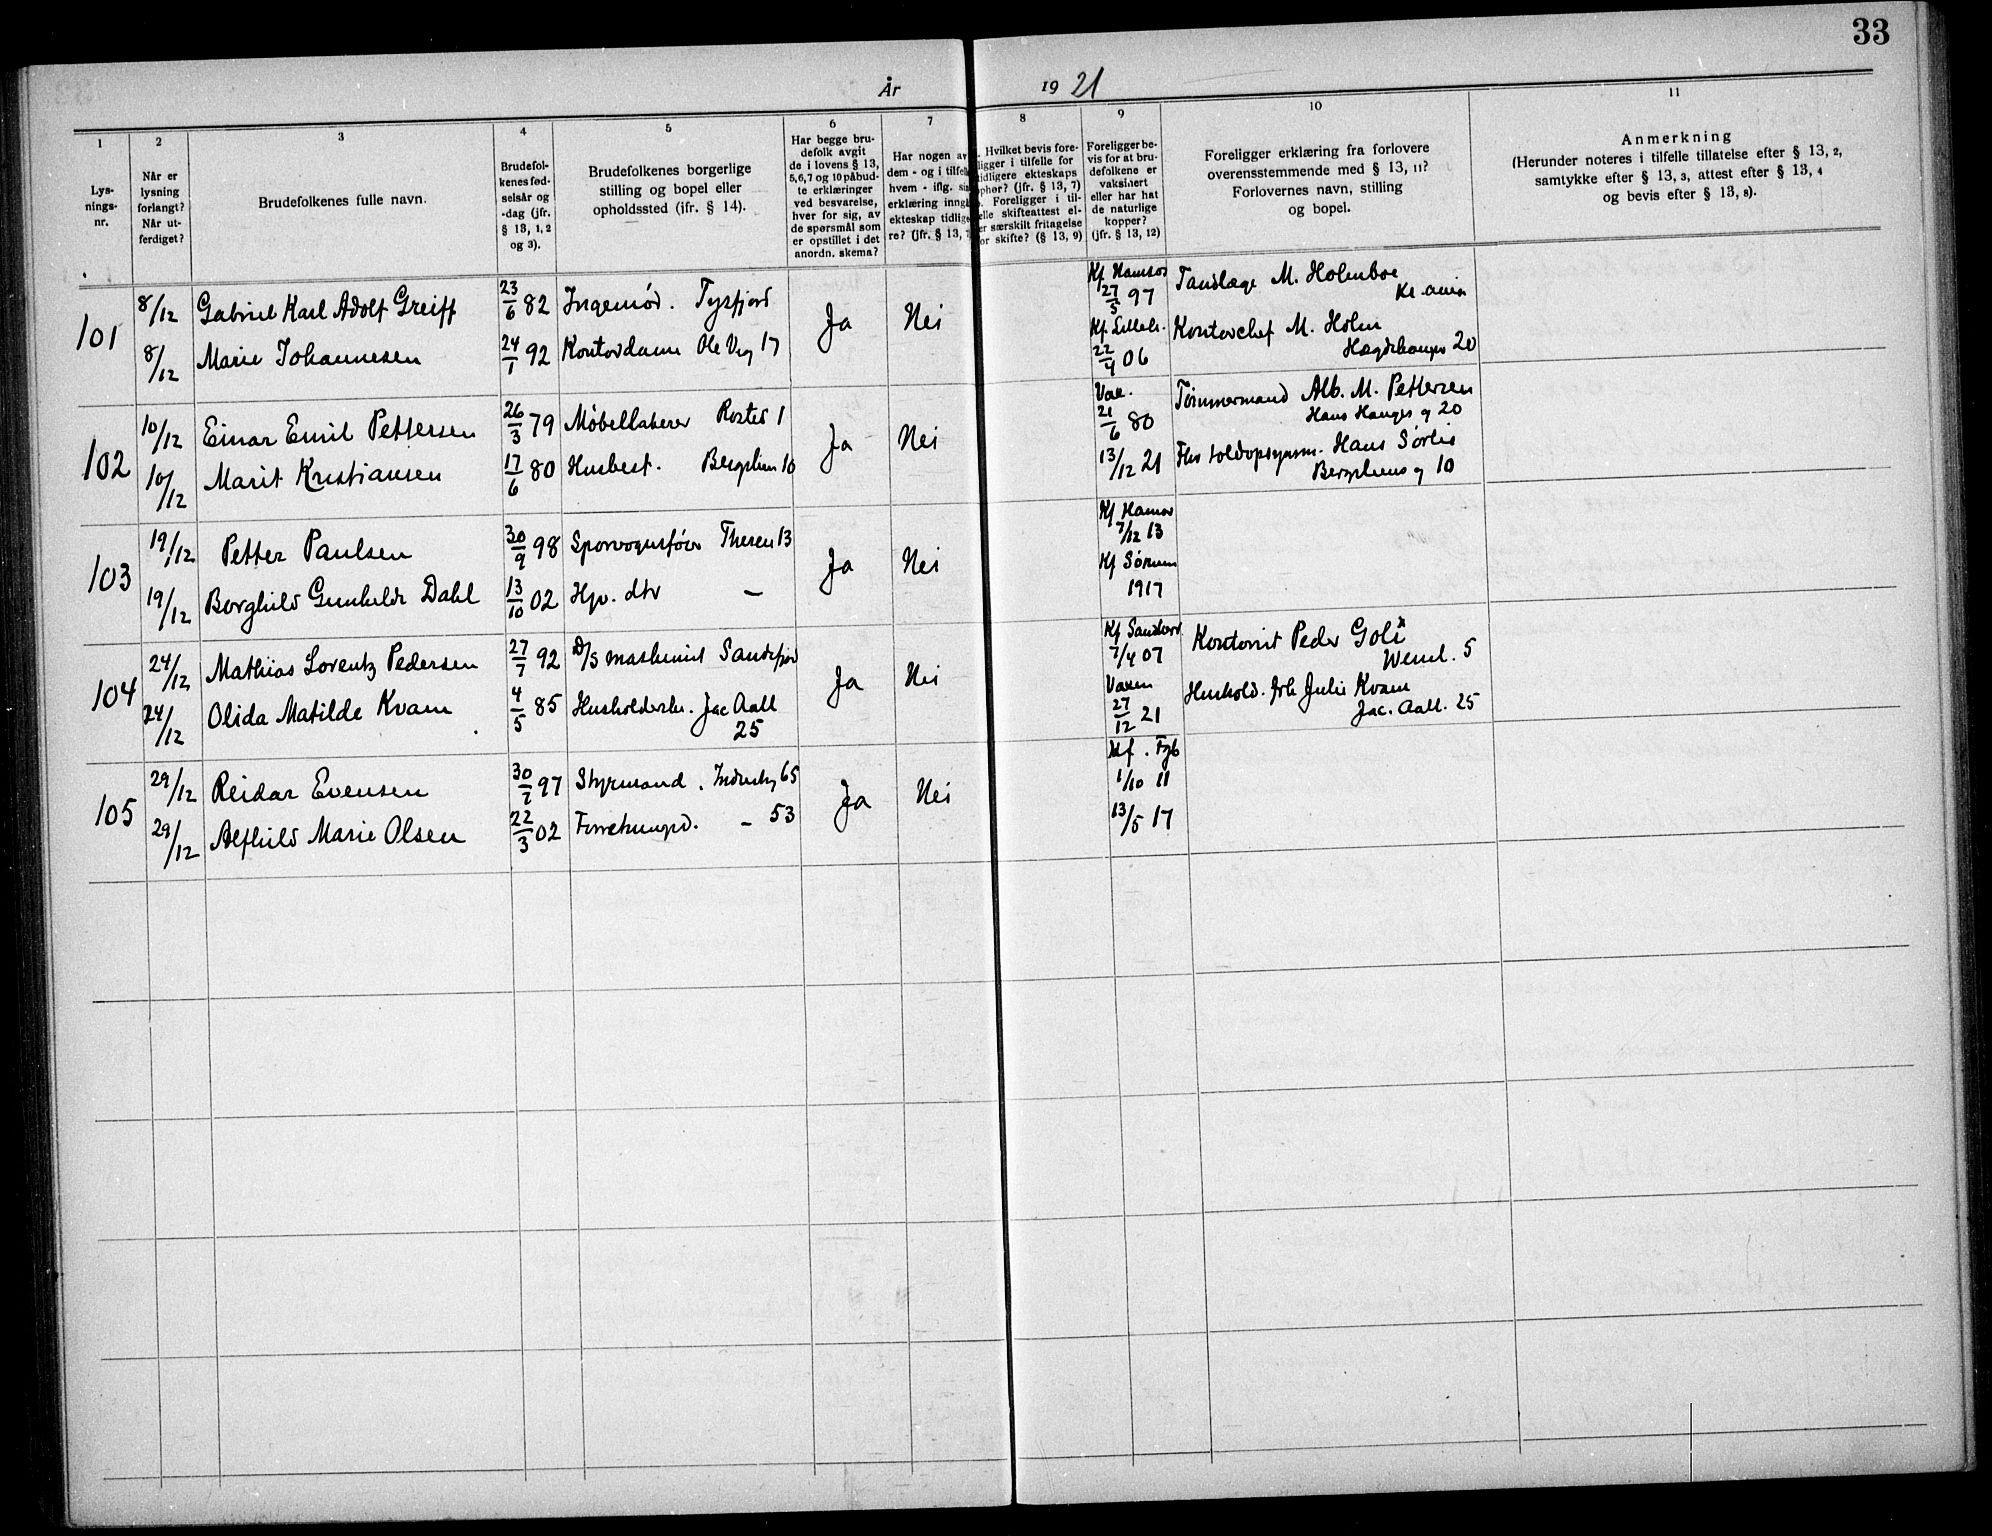 33
År 1921
1
Lys-
nings-
nr.
2
Når er
lysning
forlangt?
Når ut-
ferdiget?
3
Brudefolkenes fulle navn.
4
Brudefol-
kenes fød-
selsår og
-dag (jfr.
§ 13, 1, 2
og 3).
5
Brudefolkenes borgerlige
stilling og bopel eller
opholdssted (ifr. § 14).
6
Har begge bru-
defolk avgit
de i lovens § 13,
5, 6, 7 og 10 påbud-
te erklæringer
ved besvarelse,
hver for sig, av
de spørsmål som
er opstillet i det
anordn. skema?
7
Har nogen av
dem - og i tilfelle
hvem - iflg. sin
erklæring inngå
ekteskap tidlige
re? (jfr. § 13, 7
8
Hvilket bevis fore-
ligger i tilfelle for
tidligere ekteskaps
ophør? (jfr. § 13, 7)
Foreligger i til-
elle skifteattest el-
er særskilt fritagelse
or skifte? (§ 13, 9)
9
Foreligger be-
vis for at bru-
defolkene er
vaksinert
eller har hat
de naturlige
kopper?
(jfr. § 13, 12)
10
Foreligger erklæring fra forlovere
overensstemmende med § 13, 11?
Forlovernes navn, stilling
og bopel.
11
Anmerkning
(Herunder noteres i tilfelle tillatelse efter § 13, 2,
samtykke efter § 13, 3, attest efter § 13, 4
og bevis efter § 13, 8).
101 8/12 Gabriel Karl Adolf Greiff 23/6 82 Ingeniør. Tysfjord Ja Nei Kf Hamsos 27/5 97 Tandlæge M. Holmboe
8/12 Marie Johannesen 24/1 92 Kontordame Ole Vig 17 Kf. Lilleh. 22/4 06 Kontorchef M. Holm
Hægdehaugs 20
102 10/12 Einar Emil Pettersen 26/3 79 Møbellakerer Rosted 1 Ja Nei Vac. 21/6 80 Tømmermand Alb. M. Pettersen
Hans Hauges g 20
10/12 Marit Kristiansen 17/6 80 Husbest. Bergslien 10 13/12 21 Hans Sørlie
Bergsliens g 10
103 19/12 Petter Paulsen 30/9 98 Sporvognsfører Theres 13 Ja Nei Kf Hamar 7/12 13
19/12 Borghild Gunhilde Dahl 13/10 02 Hpv. dtr — Kf Sørum 1917
104 24/12 Mathias Lorentz Pedersen 27/7 92 D/S maskinist Sandefjord Ja Nei Kf Sandherr. 7/4 07 Kontorist Peder Goli
Wessel. 5
24/12 Olida Matilde Kvam 4/5 85 Husholderske. Jac Aall 25 Vaxen 27/12 21 Hushold. frk Julie Kvam
Jac. Aall. 25
105 29/12 Reidar Evensen 30/7 97 Styrmand. Industrig 65 Ja Nei Kf. Fgb 1/10 11
29/12 Alfhild Marie Olsen 22/3 02 Forretningsd. — 53 13/5 17